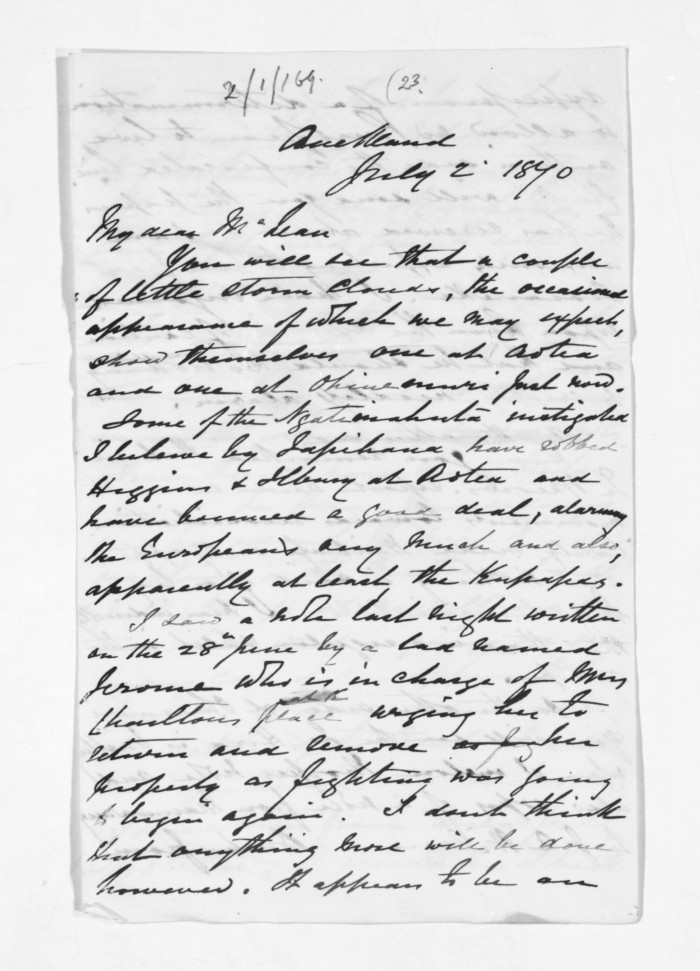 2/1/169. (23.
Auckland
July 2 1870
My dear McLean
You will see that a couple
of little storm clouds, the occasional
appearance of which we may expect,
show themselves one at Aotea
and one at Ohinemuri just now.
Some of the Ngatimahuta instigated
I believe by Tapihana have robbed
Higgins & at Aotea and
have bounced a good deal, alarming
the Europeans very much and also,
apparently at least, the Kupapas.
I saw a note last night written
on the 28th June by a lad named
Jerome who is in charge of Mrs
Charltons place urging her to
return and remove her
property as fighting was going
to begin again. I don't think
that anything more will be done
however. It appears to be an